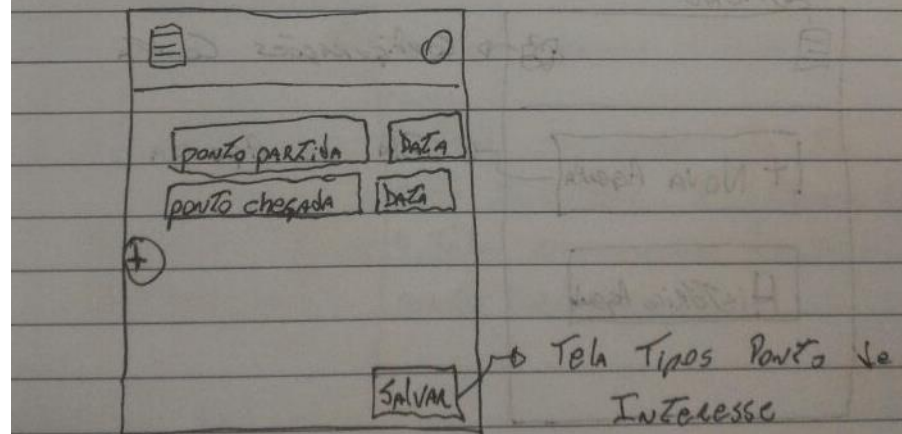 PONTO PARTIDA DATA
PONTO CHEGADA DATA
+
SALVAR
Tela Tipos Ponto de
Interesse
+ Nova Agenda